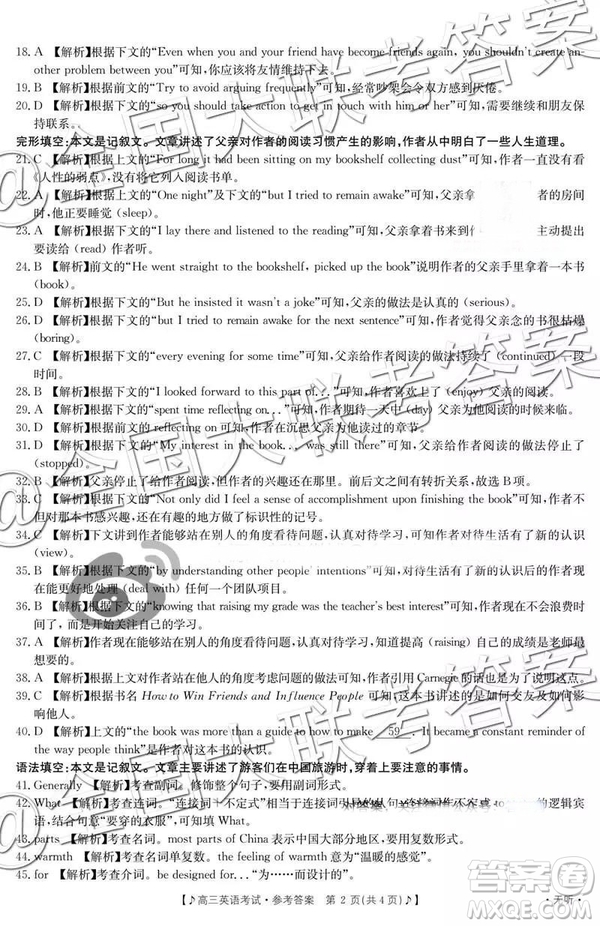 18. A 【解析】根据下文的“Even when you and your friend have become friends again, you shouldn't create an-
other problem between you”可知,你应该将友情继续下去。
19. B 【解析】根据前文的“Try to avoid arguing frequently”可知,经常吵架会令双方感到厌倦。
20. D 【解析】根据下文的“so you should take action to get in touch with him or her”可知,需要继续和朋友保
持联系。
完形填空:本文是记叙文。文章讲述了父亲对作者的阅读习惯产生的影响,作者从中明白了一些人生道理。
21. C 【解析】根据下文的“For long it had been sitting on my bookshelf collecting dust”可知,作者有一本没看
《人性的弱点》,并将它列入阅读书单。
22. A 【解析】根据上文的“One night”及下文的“but I tried to remain awake”可知,父亲拿 者的房间
时,他正要睡觉(sleep)。
23. A 【解析】根据下文的“I lay there and listened to the reading”可知,父亲拿着书来到作 主动提出
要读给(read)作者听。
24. B 【解析】前文的“He went straight to the bookshelf, picked up the book”说明作者的父亲手里拿着一本书
(book)。
25. D 【解析】根据上文的“But he insisted it wasn't a joke”可知,父亲的做法是认真的(serious)。
26. D 【解析】根据下文的“but I tried to remain awake for the next sentence”可知,作者觉得父亲念的书很枯燥
(boring)。
27. C 【解析】根据下文的“every evening for some time”可知,父亲给作者阅读的做法持续了(continued)一段
时间。
28. B 【解析】根据下文的“I looked forward to this part of...”可知,作者喜欢上了(enjoy)父亲的阅读。
29. A 【解析】根据下文的“spent time reflecting on...”可知,作者期待一天中(day)父亲为他阅读的时候来临。
30. D 【解析】根据前文的 reflecting on 可知,作者在沉思父亲为他读过的章节。
31. D 【解析】根据下文的“My interest in the book... was still there”可知,父亲给作者阅读的做法停止了
(stopped)。
32. B 【解析】父亲停止了给作者阅读,但作者的兴趣还在那里。前后文之间有转折关系,故选 B 项。
33. C 【解析】根据下文的“Not only did I feel a sense of accomplishment upon finishing the book”可知,作者
对那本书感兴趣,还在有趣的地方做了标识性的记号。
34. A 【解析】下文讲到作者能够站在别人的角度看待问题,认真对待学习,可知作者对待生活有了新的认识
(view)。
35. B 【解析】根据下文的“by understanding other people' intentions”可知,作者对待生活有了新的认识后的作者现
在能更好地处理(deal with)任何一个团队项目。
36. B 【解析】根据下文的“knowing that raising my grade was the teacher's best interest”可知,作者现在不会浪费时
间了,而是开始关注自己的学习。
37. A 【解析】作者现在能够站在别人的角度看待问题,认真对待学习,知道提高(raising)自己的成绩是老师最
想要的。
38. A 【解析】根据上文对作者站在他人的角度考虑问题的描述可知,作者引用 Carnegie 的话也是为了说明这点。
39. C 【解析】根据书名 How to Win Friends and Influence People 可知,这本书讲述的是如何交友以及如何影响
他人。
40. D 【解析】根据上文的“the book was more than a guide to how to make 59 . It became a constant reminder of
the way people think”可知,作者对这本书的认识。
语法填空:本文是记叙文。文章主要讲述了游客们在中国旅游时,穿着上要注意的事情。
41. Generally 【解析】考查副词。修饰整个句子,要用副词。
42. What 【解析】考查连词。“连接词+不定式”相当于连接词引导的从句, to 的逻辑宾
语,结合句意“要穿的衣服”,可知填 What。
43. parts 【解析】考查名词。most parts of China 表示中国大部分地区,要用复数形式。
44. warmth 【解析】考查名词单复数。the feeling of warmth 意为“温暖的感觉”。
45. for 【解析】考查介词。be designed for... “为……设计”。
【♪高三英语考试·参考答案 第 2 页(共 4 页)♪】 ·天听·
@全国大联考答案